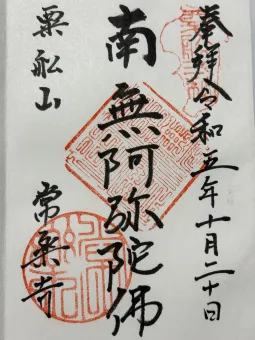 奉拝 令和五年十月二十日
南無阿弥陀佛
粟舩山
常楽寺